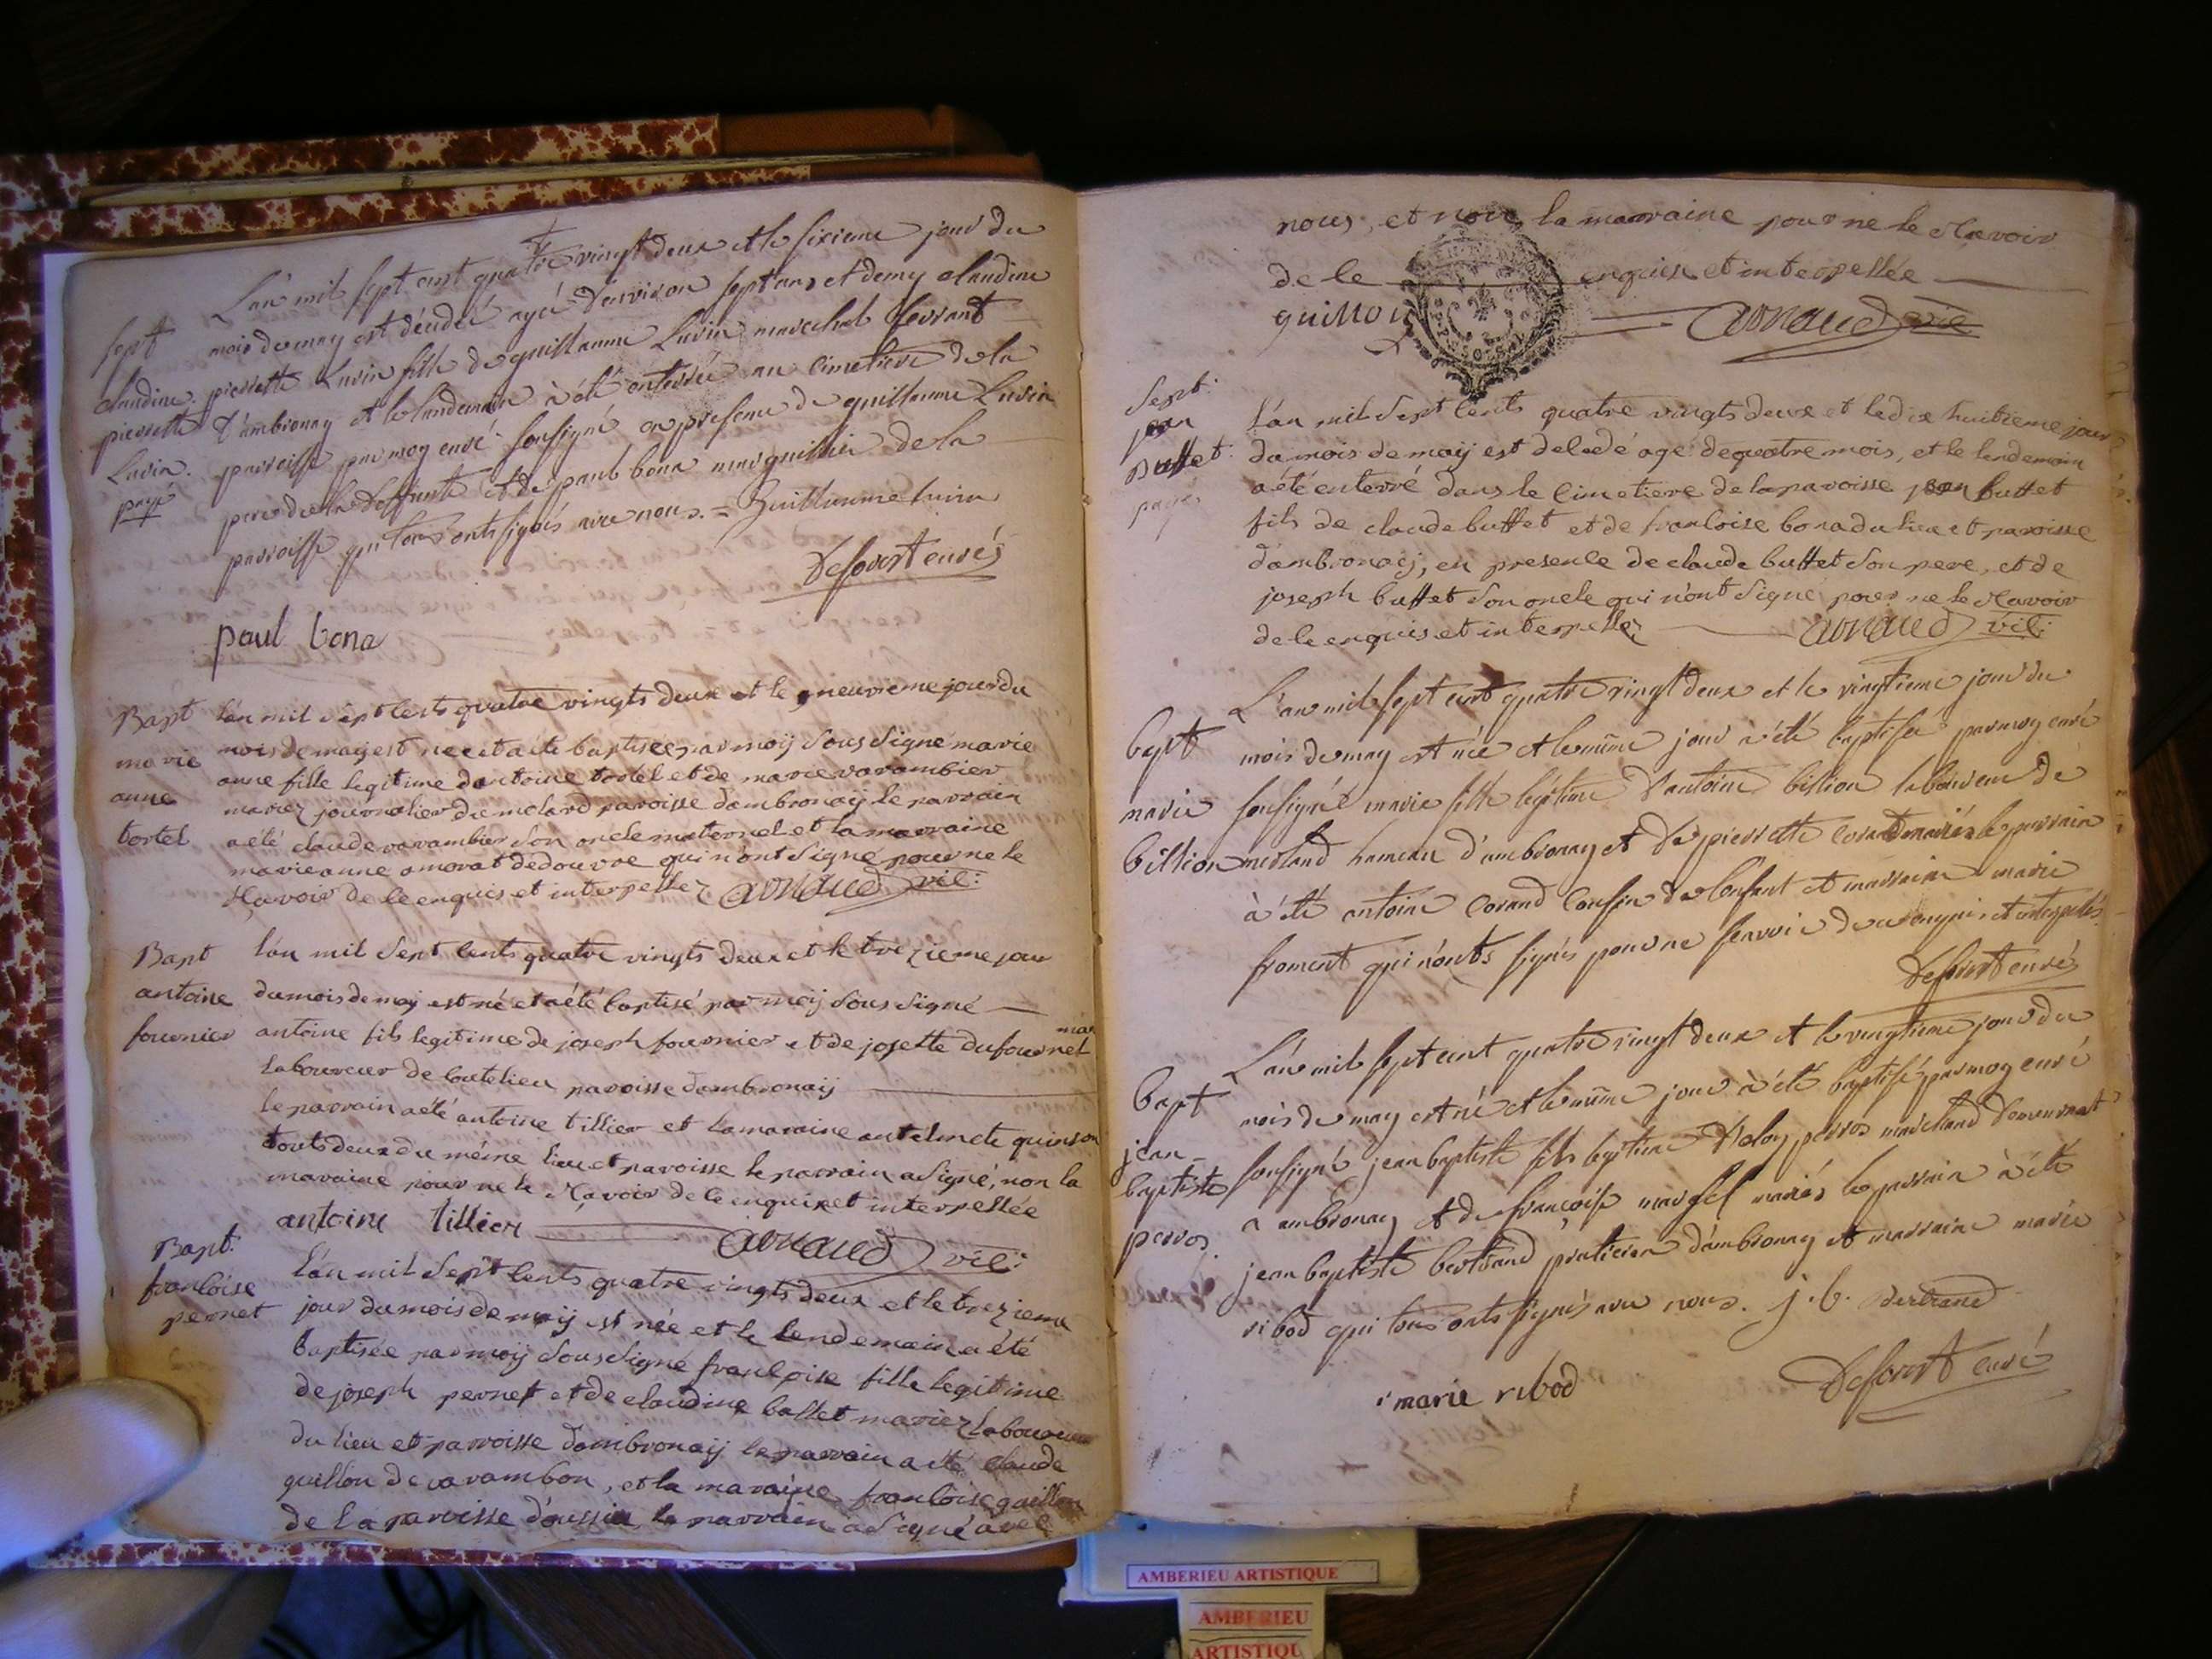 L'an mil sept cent quatre vingt deux et le sixieme jour du
sept
mois de may est décédéé agéé d'environ sept ans et demy claudine
claudine
pierrette Luvin fille de guillaume Luvin marechal ferrant
pierrette
d'ambronay et le landemain à été enterréé au cimetiere de la
Luvin.
parroisse par moy curé soussigné en presence de guillaume Luvin
payé
pere de la deffunte et de paul bona marguillier de la
parroisse qui tous onts signés avec nous. = Guillaume luvin
Desforest curé
paul bona
Bapt
marie
anne
tortel
l'an mil sept cents quatre vingts deux et le neuvieme jour du
mois de maij est nee et a ete baptisée par moij sous signé marie
anne fille legitime dantoine tortel et de marie varambier
mariez journalier du molard paroisse dambronaij le parrain
a été claude varambier son oncle maternel et la marraine
marie anne morat de douvre qui n'ont signé pour ne le
sçavoir de ce enquis et interpellez arnaud vic:
Bapt
antoine
fournier
l'an mil sept cents quatre vingts deux et le trezieme jour
du mois de maij est né et a été baptisé par moij sous signé
antoine fils legitime de joseph fournier et de josette dufournel mar
laboureur de coutelieu paroisse dambronaij
le parrain a été antoine tillier et la maraine antelmete quinson
touts deux du méme lieu et paroisse le parrain a signé, non la
maraine pour ne le sçavoir de ce enquise et interpellée
antoine tillier arnaud vic:
Bapt:
francoise
pernet
l'an mil sept cents quatre vingts deux et le trezieme
jour du mois de maij est née et le lendemain a été
baptisée par moij sous signé francoise fille legitime
de joseph pernet et de claudine ballet mariez laboureur
du lieu et parroisse dambronaij le parrain a été claude
guillon de varambon, et la maraine francoise guillon
de la paroisse d'oussia, le parrain a signé avec
nous, et non la marraine pour ne le sçavoir
de ce enquise et interpellée
guillon arnaud vic
Sept:
jean
Buffet:
payé
l'an mil sept cents quatre vingts deux et le dix huitieme jour
du mois de maij est decedé agé de quatre mois, et le lendemain
a été enterré dans le cimetiere de la paroisse jean buffet
fils de claude buffet et de francoise bona du lieu et paroisse
d'ambronaij, en presence de claude buffet son pere, et de
joseph buffet son oncle qui n'ont signé pour ne le sçavoir
de ce enquis et interpellez arnaud vic:
bapt
marie
billion
L'an mil sept cent quatre vingt deux et le vingtieme jour du
mois de may est néé et le même jour à été baptiséé par moy curé
soussigné marie fille legitime d'antoine billion laboureur de
merland hameau d'ambronay et de pierrette corand mariés le parrain
à été antoine corand cousin de l'enfant et marraine marie
froment qui n'onts signés pour ne sçavoir de ce enquis et interpellés
Desforest curé
bapt
jean-
baptiste
perros
L'an mil sept cent quatre vingt deux et le vingtieme jour du
mois de may est né et le même jour à été baptisé par moy curé
soussigné jean baptiste fils legitime d'eloy perros marchand demeurant
a ambronay et de françoise margel mariés le parrain à été
jean baptiste bertrand praticien d'ambronay et marraine marie
ribod qui tous onts signés avec nous. j. b. Bertrand
marie ribod
Desforest curé
AMBERIEU ARTISTIQUE
AMBERIEU
ARTISTIQU